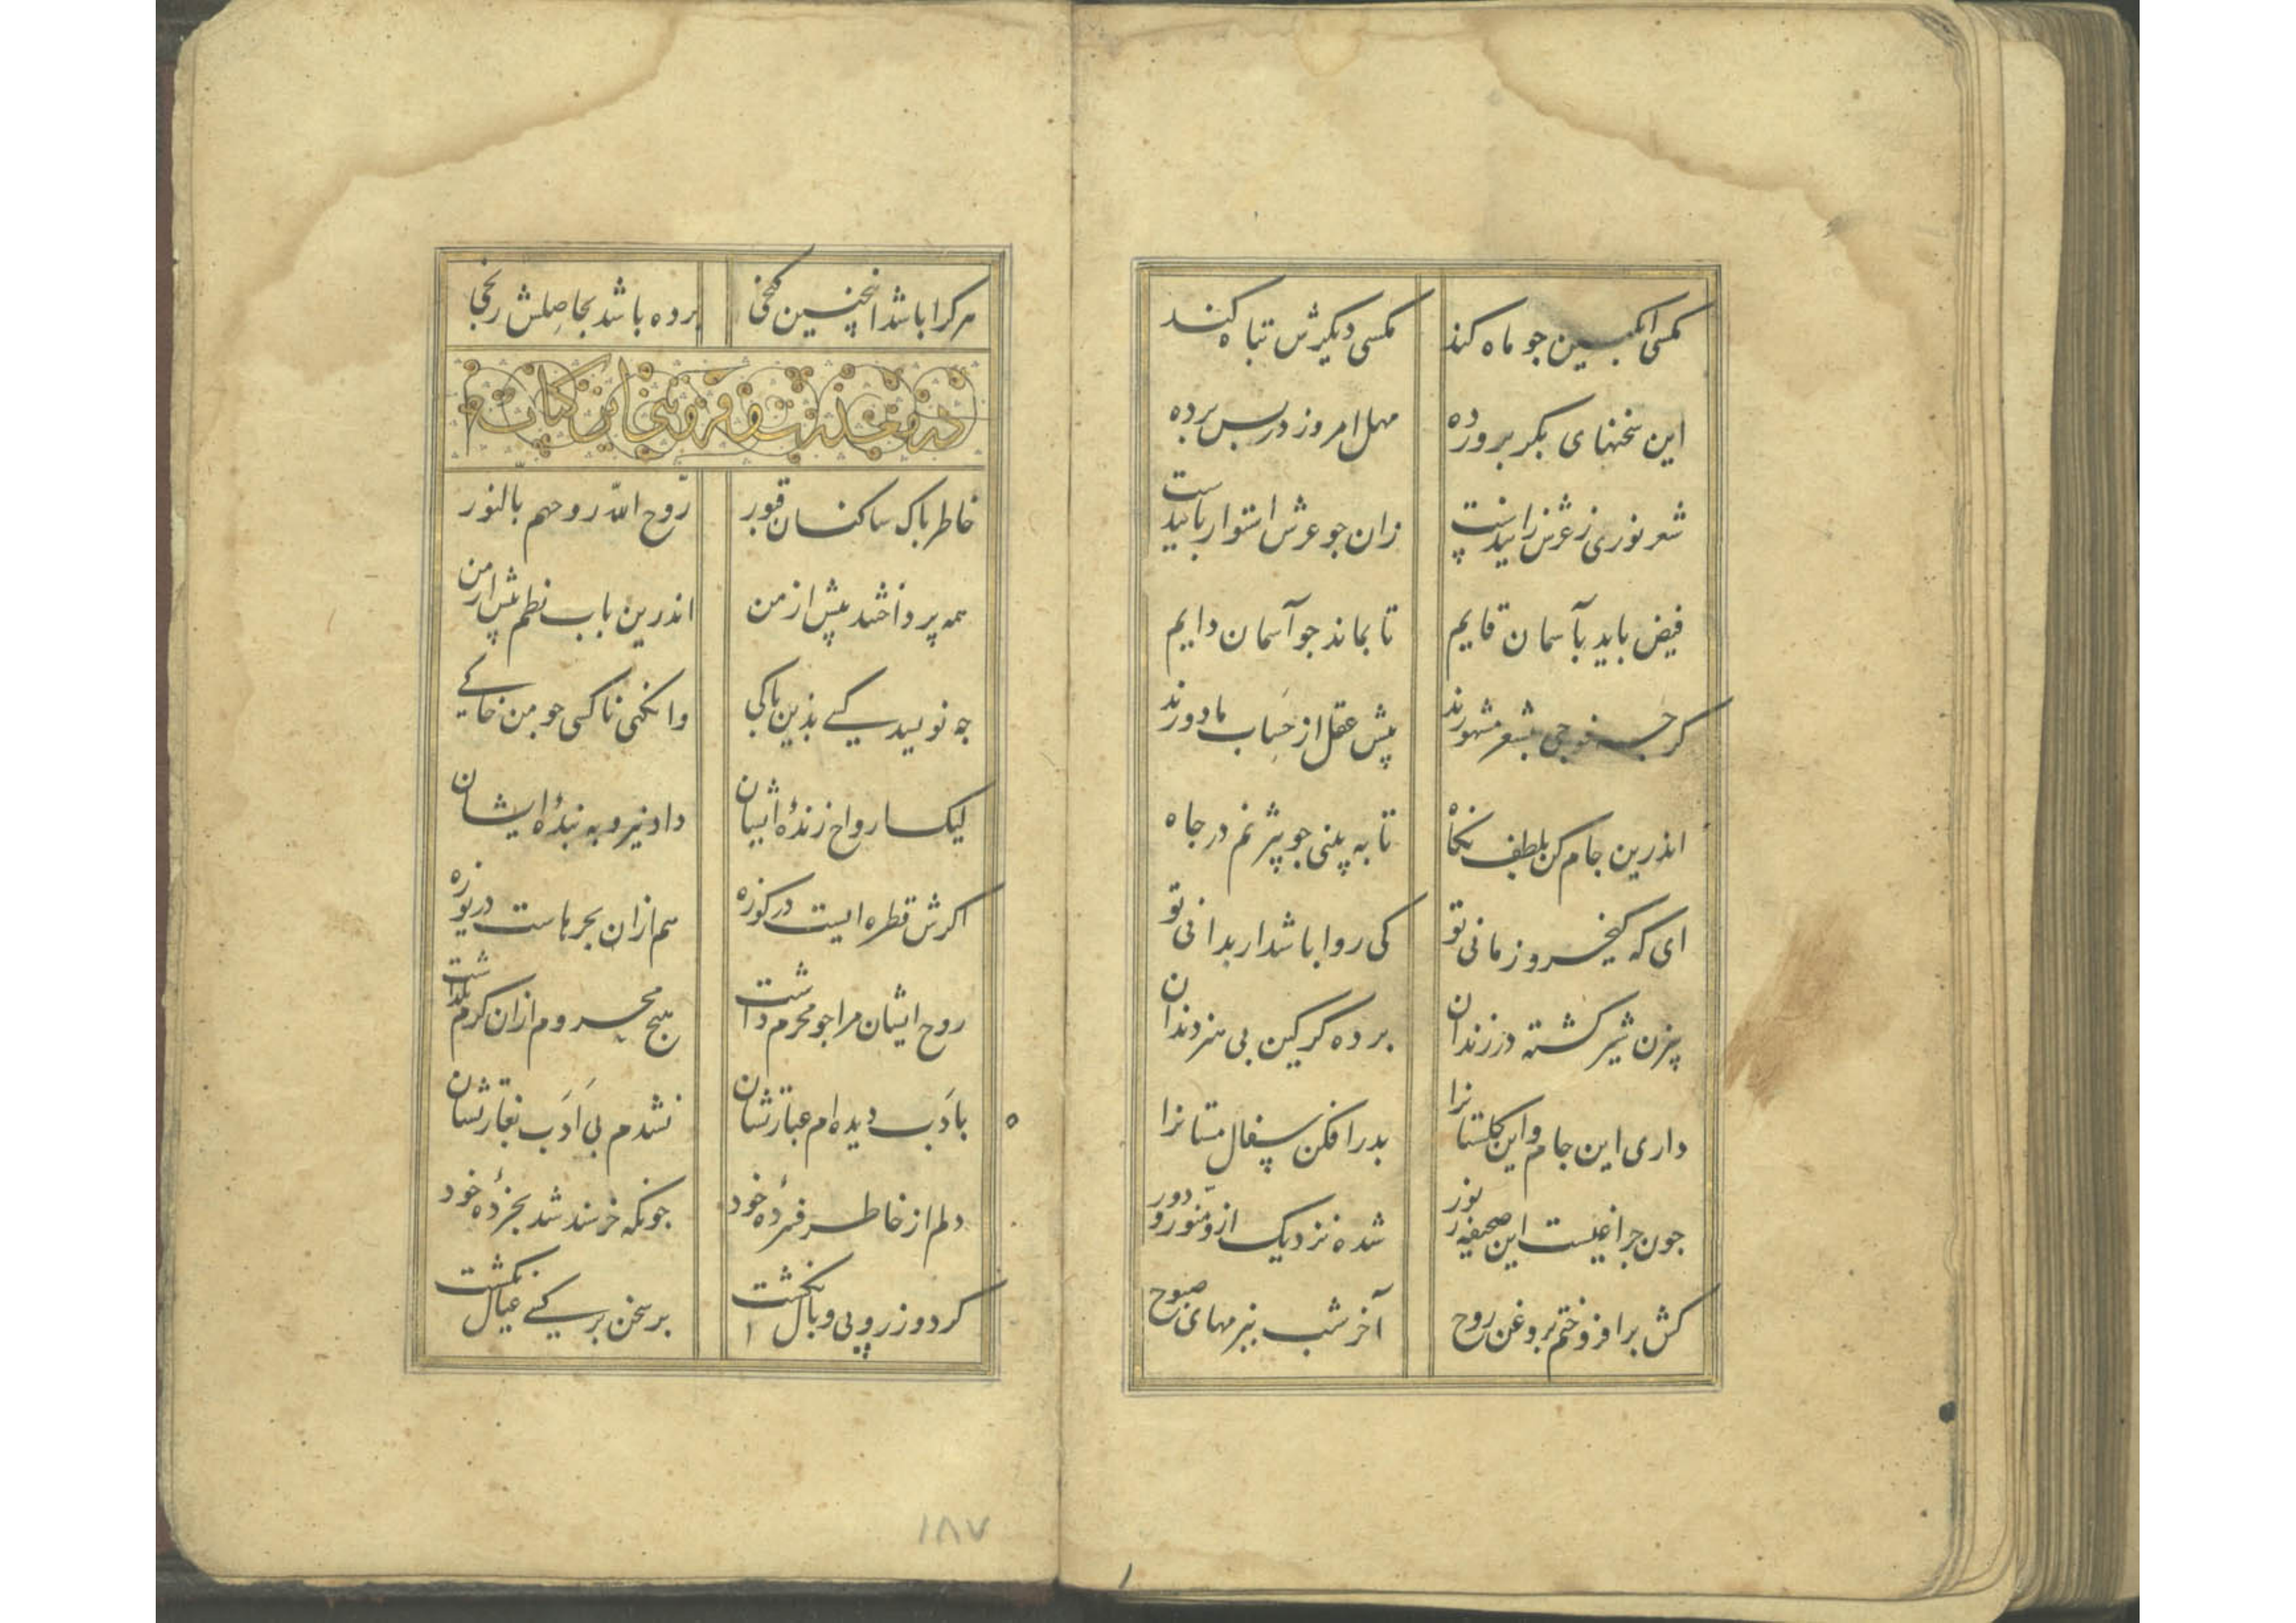 مکسی انکبین جو ماه کند
مکسی دیکرش تباه کند
این سخنهای بکر برورده
مهمل امروز در بس برده
شعر نوری ز عرش زاییدست
زان جو عرش استوار باییدست
فیض باید بآسمان قایم
تا بماند جو آسمان دایم
کر جه فوجی بشعر مشهورند
پیش عقل از حساب ما دورند
اندرین جام کن بلطف نکاه
تا به پینی جو پیژنم در جاه
ای که کیخسرو زمانی تو
کی روا باشد ار بدانی تو
پیزن شیر کشته در زندان
برده گرگین بی هنر دندان
داری این جام و این کلستانرا
بدر افکن سفال مستانرا
جون جراغیست این صحیفه ز نور
شده نزدیک ازو منور و دور
کش برافروختم بروغن روح
آخر شب ببزمهای صبوح
هر کرا باشد انجنین کنجی
برده باشد بحاصلش رنجی
در معذرت و فروتنی این کتاب
خاطر باک ساکنان قبور
روح الله روحهم بالنور
همه پرداختند پیش از من
اندرین باب نظم پیش از من
جه نویسد کسی بذین باکی
وانکهی ناکسی جو من خاکی
لیک ارواح زندهٔ ایشان
داد نیرو به بندهٔ ایشان
اکرش قطره ایست در کوزه
هم ازان بحرهاست دریوزه
روح ایشان مرا جو محرم داشت
هیج محروم ازان کرم نکذاشت
با ادب دیده ام عبارتشان
نشدم بی ادب بغارتشان
دلم از خاطر فسردهٔ خود
جونکه خرسند شد بخردهٔ خود
کرد وزر وبی وبال انکشت
بر سخن بر کسی عیال نکشت
۱۸۷